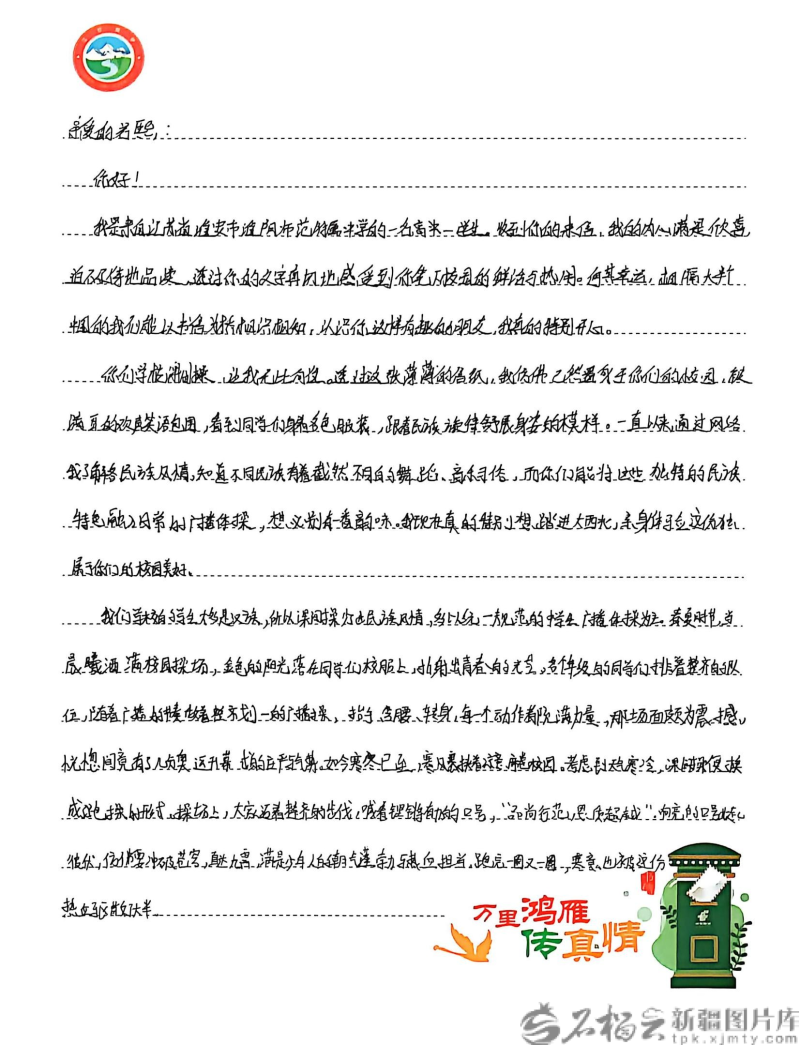 亲爱的若熙：
你好！
我是来自江苏省淮安市淮阴师范附属中学的一名高一学生。收到你的来信，我的内心满是欣喜
迫不及待地品读，透过你的文字真切地感受到你笔下校园的鲜活与热闹。何其幸运，相隔大半个
中国的我们能以书信为桥相识相知，认识你这样有趣的朋友，我真的特别开心。
你们学校课间操，让我无比向往。透过这张薄薄的信纸，我仿佛已然置身于你们的校园，
满耳的欢声笑语包围，看到同学们身着各色服装，跟着民族旋律舒展身姿的模样。一直以来通过网络
我了解各民族风情，知道不同民族有着截然不同的舞蹈、音乐习俗，而你们能将这些独特的民族
特色融入日常的广播体操，想必别有一番韵味。我现在真的特别想踏进大西北，亲身体验这份独
属于你们的校园美好。
我们学校的学生大多是汉族，所以课间操少了些民族风情，多以统一规范的中学生广播体操为主。春夏时节，当
晨曦洒满校园操场，金色的阳光落在同学们校服上，折射出青春的光芒，各年级各班的同学们排着整齐的队
位，随着广播的节奏做着整齐划一的广播操，抬手、弯腰、转身，每一个动作都饱满力量，那场面颇为震撼，
恍惚间竟有了几分奥运开幕式的庄严气氛。如今寒冬已至，寒风裹挟着凉意席卷校园。考虑到天气寒冷，课间操便换
成跑操的形式。操场上，大家迈着整齐的步伐，喊着铿锵有力的口号，“品尚行范，思质超越”响亮的口号此起
彼伏，仿佛要冲破苍穹，直达九霄，满是少年人的朝气蓬勃与热血担当。跑完一圈又一圈，寒意也被这份
热血驱散大半。
万里鸿雁
传真情
石榴云
新疆图片库
tpk.xjmty.com